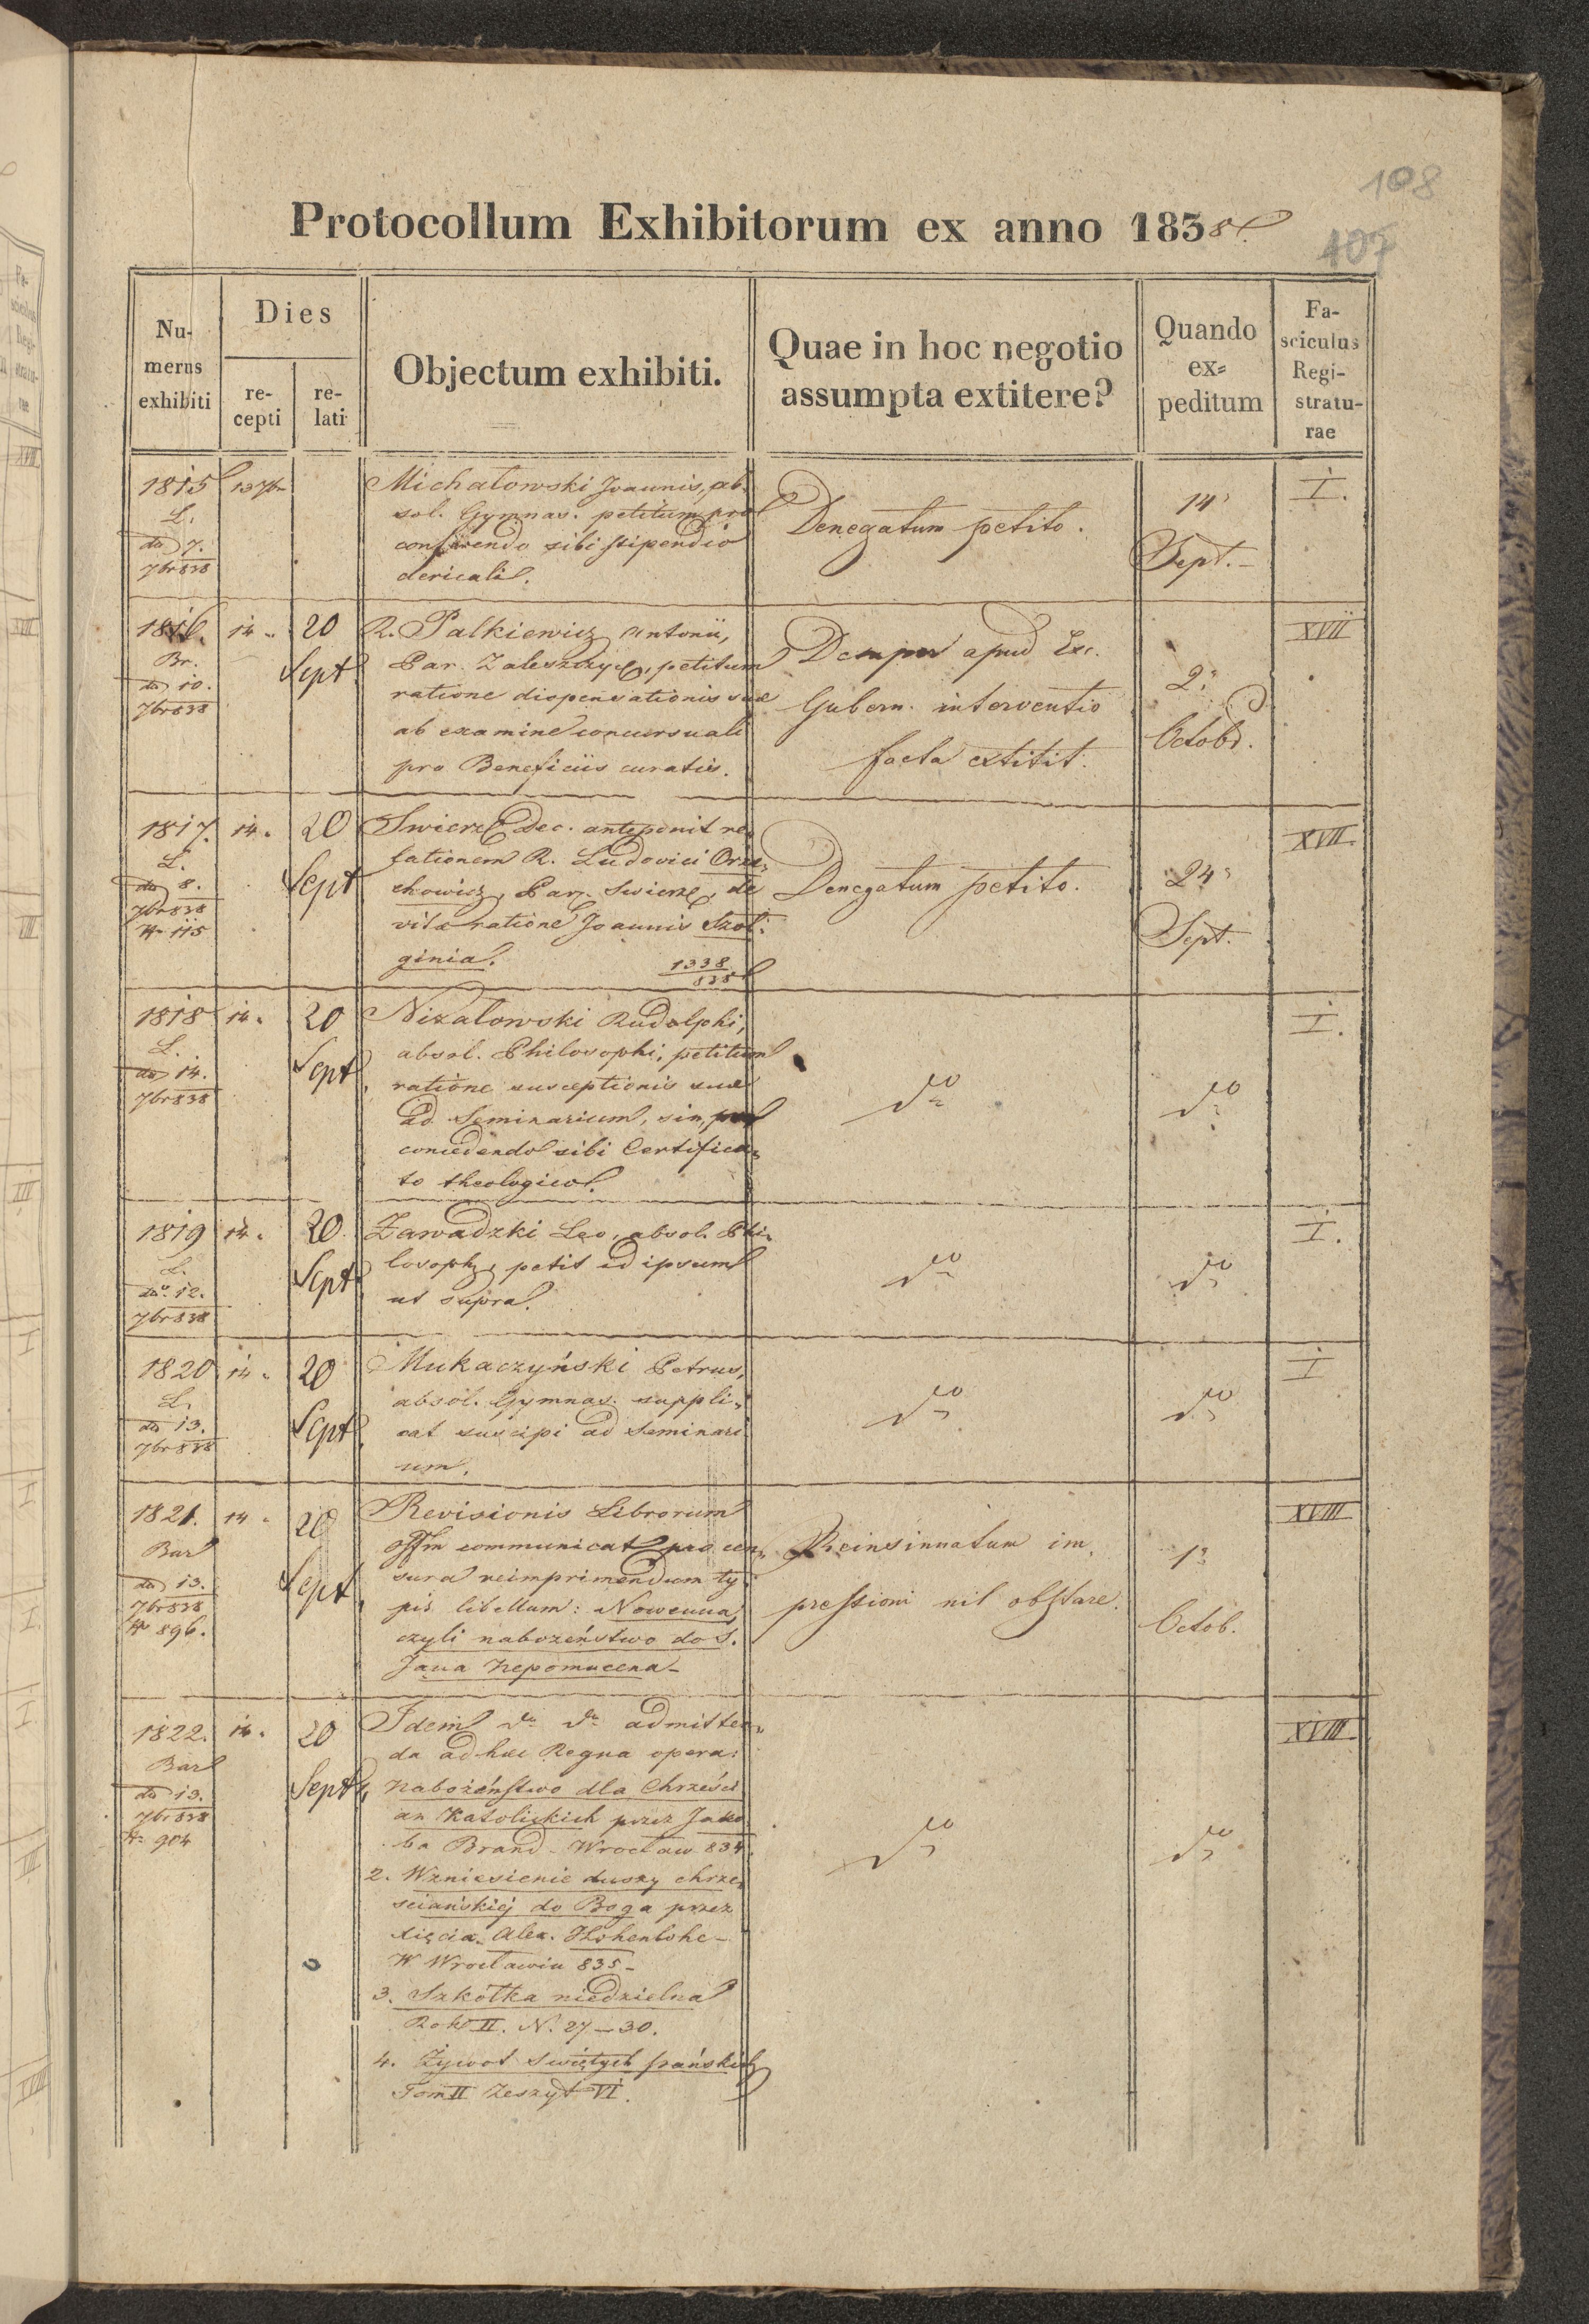 108
Protocollum Exhibitorum ex anno 1838.
107
Nu-
merus
exhibiti
Dies
re-
cepti
re-
lati
Objectum exhibiti.
Quae in hoc negotio
assumpta extitere?
Quando
ex=
peditum
Fa-
sciculus
Regi-
stratu-
rae
1815
L.
dto 7.
7br 838
13 7br
Michałowski Joannis, ab-
sol. Gymnas. petitum pro
conferendo sibi stipendio
clericali.
Denegatum petito.
14
Sept.
I.
1816.
Br.
dto 10.
7br 838
14.
20
Sept.
R. Palkiewicz Antonii,
Par. Zaleszczyc, petitum
ratione dispensationis suae
ab examine concursuali
pro Beneficiis curatis.
apud Exc.
Gubern. interventio
facta extitit.
2
Octob.
XVII
1817.
L.
dto 8.
7br 838
N 115
14.
20
Sept.
Swierz Dec. anteponit re-
lationem R. Ludovici Orze-
chowicz, Par. Swierz, de
vita ratione Joannis Szoł-
ginia.
1338
838
Denegatum petito.
24
Sept.
XVII.
1818
L.
dto 14.
7br 838
14.
20
Sept.
Nizałowski Rudolphi,
absol. Philosophi, petitum
ratione susceptionis suae
ad Seminarium, sin, pro
concedendo sibi Certifica-
to theologico.
dto
dto
I.
1819
L.
dto 12.
7br 838
14.
20
Sept.
Zawadzki Leo, absol. Phi-
losoph, petit id ipsum
ut supra.
dto
dto
I.
1820
L.
dto 13.
7br 838
14.
20
Sept.
Mukaczyński Petrus,
absol. Gymnas. suppli-
cat suscipi ad Seminari
um.
dto
dto
I
1821.
Bar
dto 13.
7br 838
N 896.
14.
20
Sept.
Revisionis Librorum
Offm communicat pro cen-
sura reimprimendum ty-
pis libellum: Nowenna
czyli nabożeństwo do S.
Jana Nepomucena-
Reinsinuatum im-
pressioni nil obstare.
1
Octob.
XVIII
1822.
Bar
dto 13.
7br 838
N 904
14.
20
Sept.
Idem dto dto admitten-
da ad haec Regna opera:
Nabożeństwo dla Chrześci
an Katolickich przez Jako
ba Brand - Wrocław 834.
2. Wzniesienie duszy chrze-
sciańskiej do Boga przez
Xięcia Alex. Hohenlohe -
W Wrocławiu 835-
3. Szkółka niedzielna
Rok II. N. 27-30.
4. Żywot świętych pańskich
Tom II Zeszyt VI.
dto
dto
XVIII.